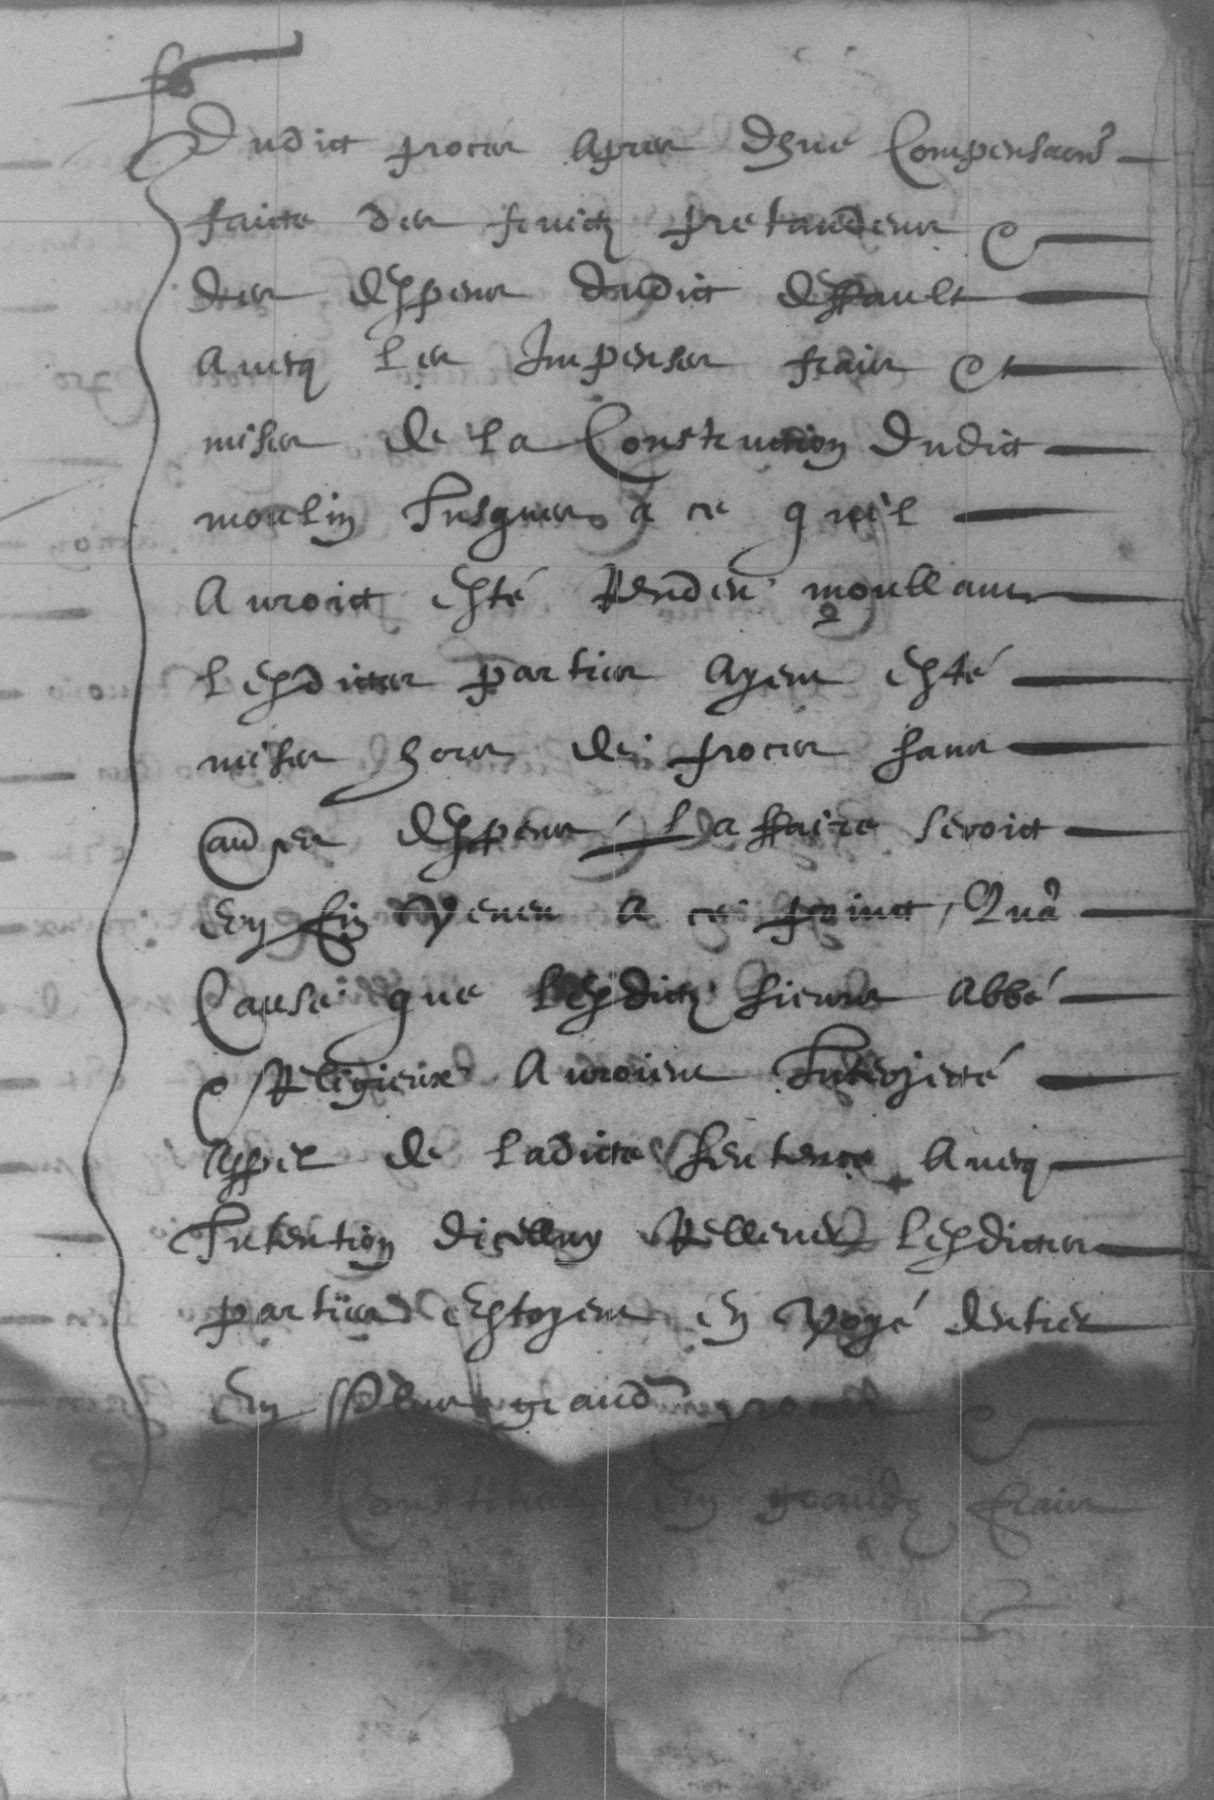 Dudict proces apres deue Compensaōn
faicte des fruictz pretandeus &
des despens dudict deffault
avecq les Impenses fraiz et
mises de la Construction dudict
moulin Jusques a ce quil
auroict esté Rendeu moullant
lesdictes parties ayent esté
mises hors de proces sans
aulcuns despens, laffaire seroict
en fin veneu a ce poinct, Qua
Cause que lesdictz sieurs abbé
& Religieux auroient Interjecté
appel de ladicte sentence avecq
Intention dicelluy Rellever lesdictes
parties estoyent en voye dentrer
en plus grand proces &
se Constituer en grandz fraiz